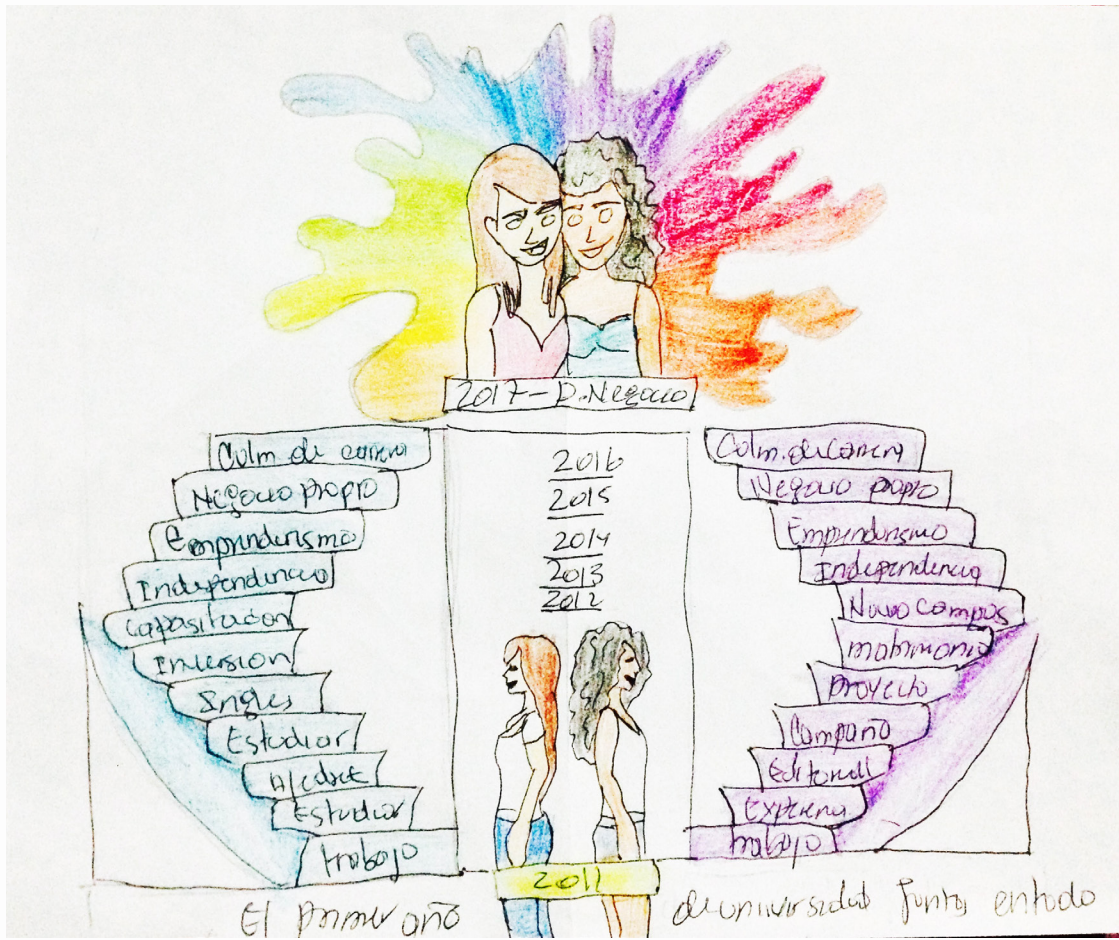 2017 - D. Negocio
Culm. de carrera
Negocio propio
Emprenderismo
Independencia
Capasitacion
Inversion
Ingles
Estudiar
Estudiar
trabajo
2016
2015
2014
2013
2012
Culm. de carrera
Negocio propio
Emprenderismo
Independencia
Nuevo campus
matrimonio
proyecto
Campaño
Editorial
Experien
trabajo
2011
El primer año de universidad juntas en todo